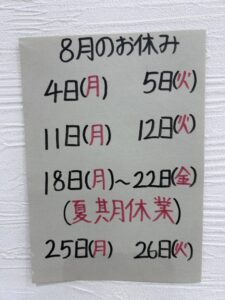 8月のお休み
4日(月) 5日(火)
11日(月) 12日(火)
18日(月)～22日(金)
(夏期休業)
25日(月) 26日(火)